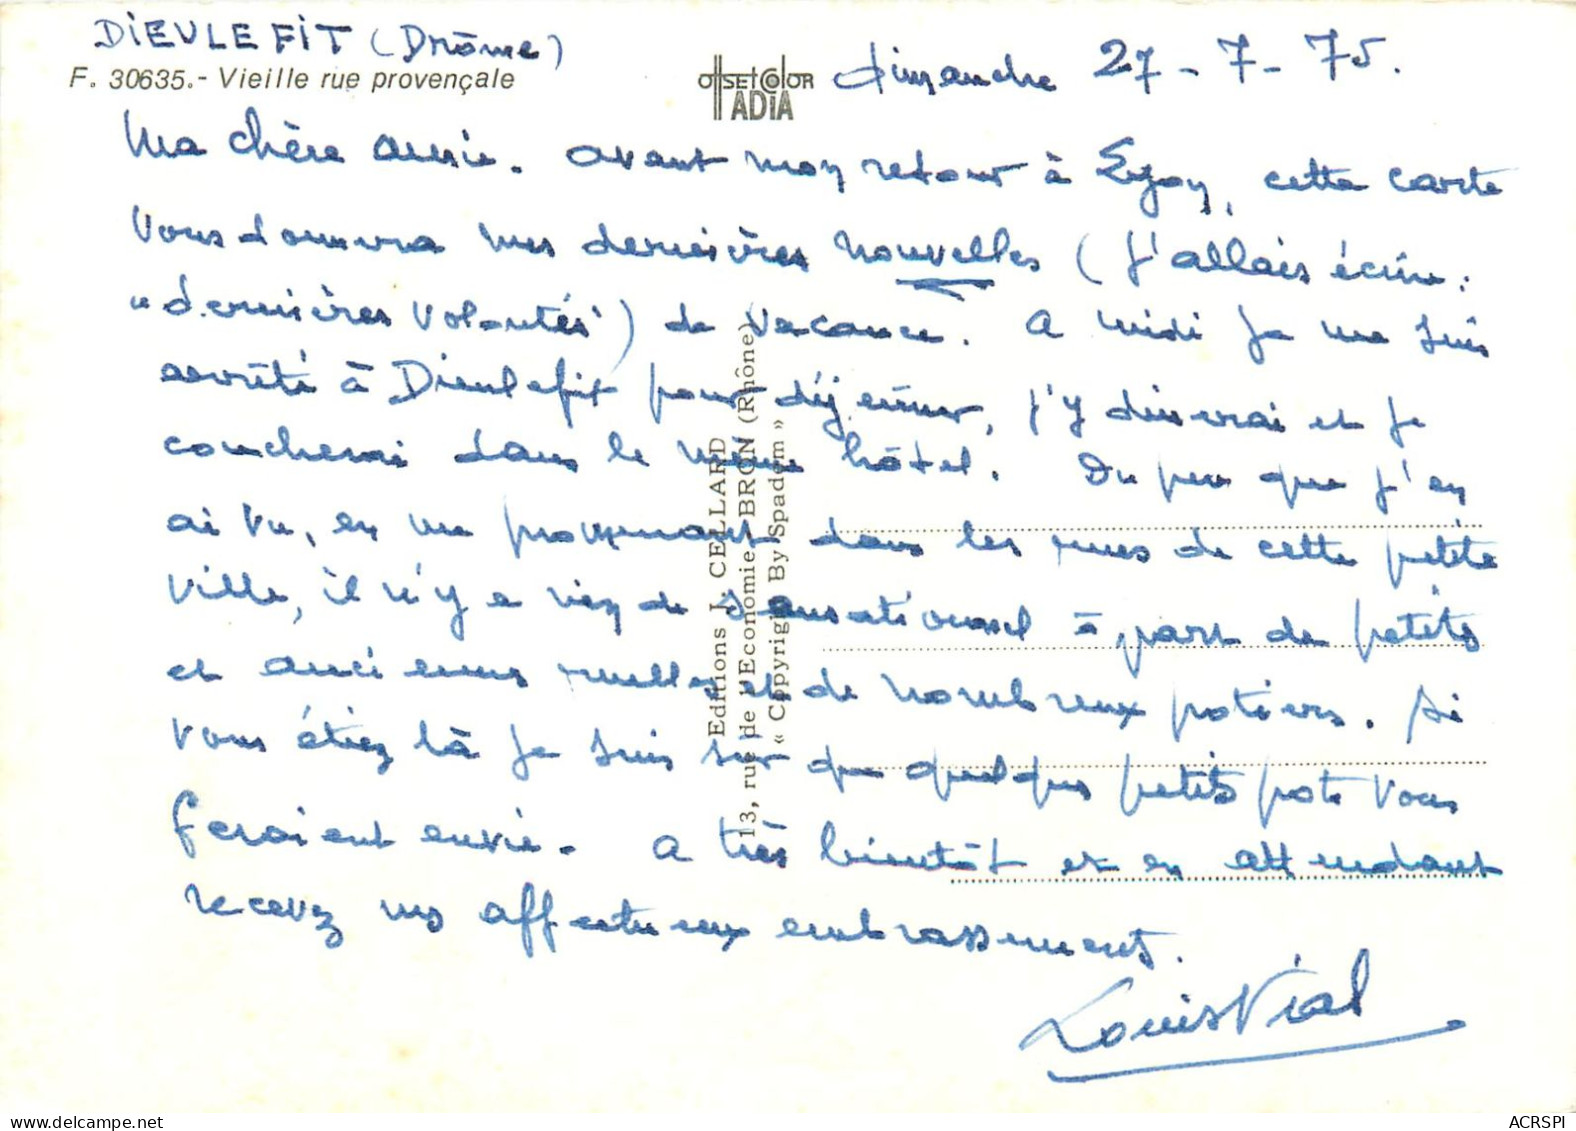 DIEULEFIT (Drôme)
F. 30635.- Vieille rue provençale
OffSETCOlOR
ADIA
dimanche 27-7-75.
Ma chère amie. avant mon retour à Lyon, cette carte
vous donnera mes dernières nouvelles (j'allais écrire:
"dernières volontés") de vacance. A midi je me suis
arrêté à Dieulefit pour déjeuner, j'y dinerai et je
coucherai dans le même hôtel. Du peu que j'en
ai vu, en me promenant dans les rues de cette petite
ville, il n'y a rien de sensationnel à part de petites
et anciennes ruelles et de nombreux potiers. Si
vous étiez là je suis sûr que quelques petits pots vous
feraient envie. A très bientôt et en attendant
recevez mes affectueux embrassements.
Louis Vial
Editions J. CELLARD
13, rue de l'Economie BRON (Rhône)
« Copyright By Spadem »
ACRSPI